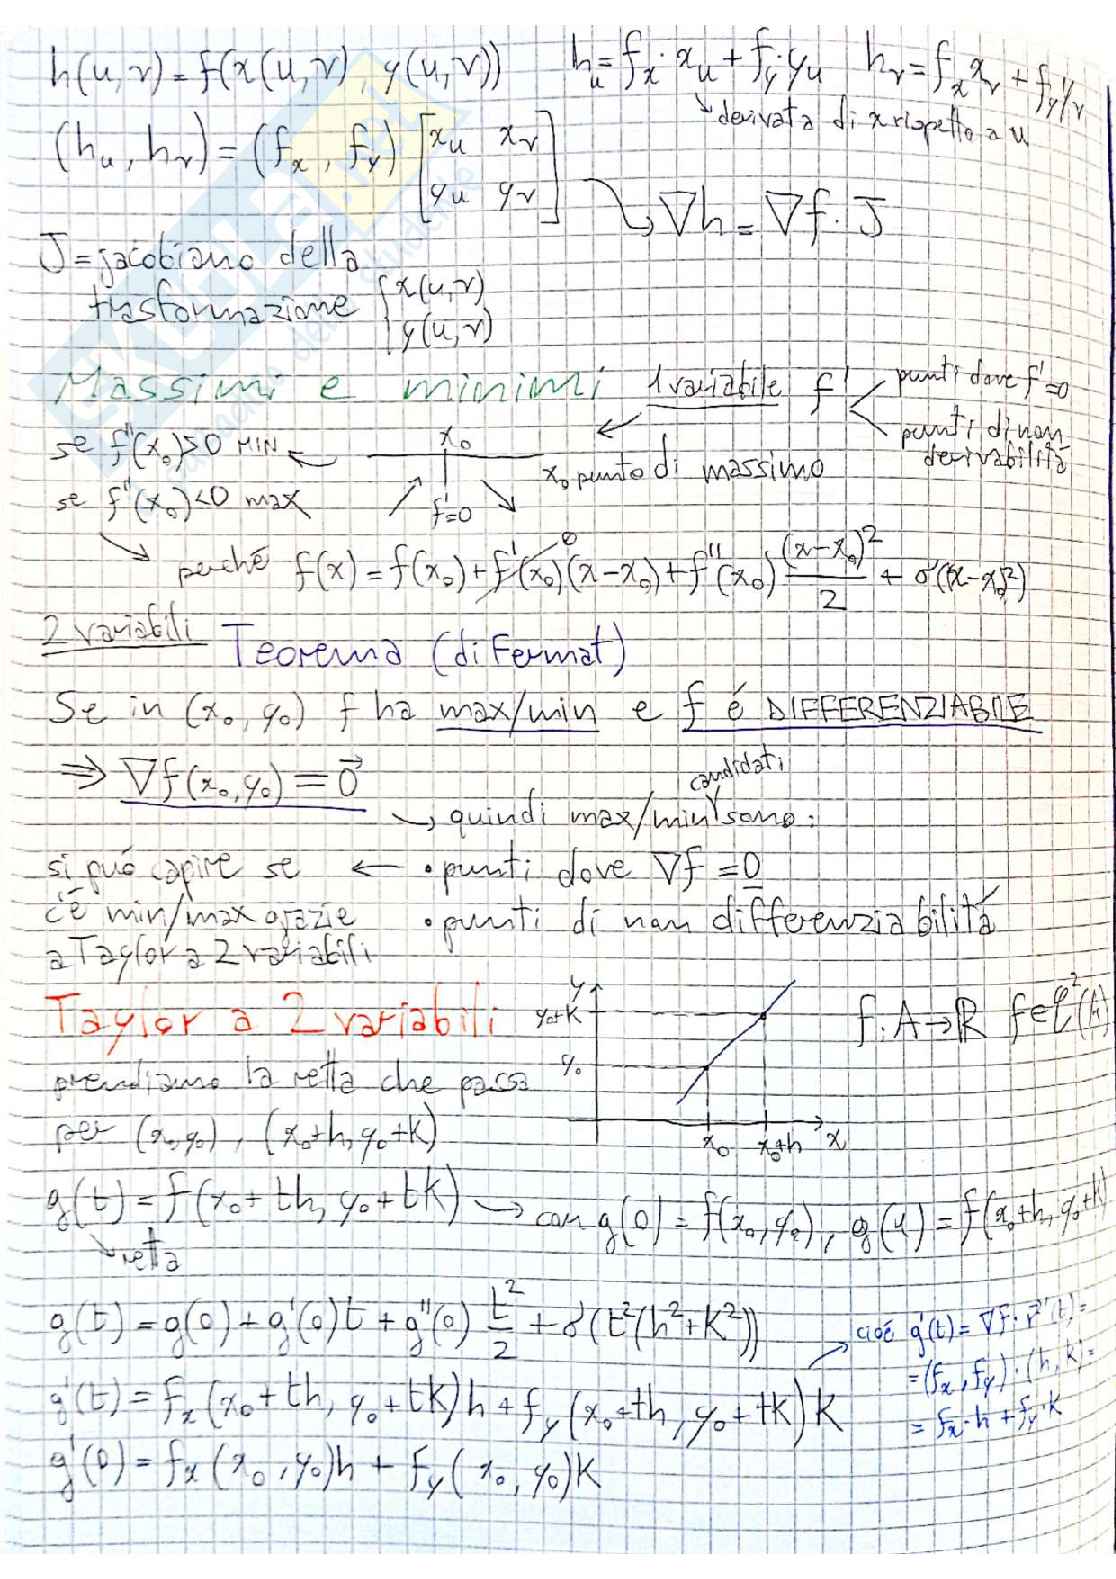 h(u,v) = f(x(u,v), y(u,v))   h_u = f_x · x_u + f_y · y_u   h_v = f_x x_v + f_y y_v
↘ derivata di x rispetto a u
(h_u, h_v) = (f_x, f_y) [x_u x_v
y_u y_v] ↘ ∇h = ∇f · J
J = jacobiano della
trasformazione { x(u,v)
y(u,v)
Massimi e minimi 1 variabile f' < punti dove f'=0
punti di non derivabilità
se f''(x₀)>0 MIN ← x₀
x₀ punto di massimo
se f''(x₀)<0 max f'=0
↘ perché f(x) = f(x₀) + f'(x₀)(x-x₀) + f''(x₀) (x-x₀)²/2 + o((x-x₀)²)
0
2 variabili Teorema (di Fermat)
Se in (x₀, y₀) f ha max/min e f é DIFFERENZIABILE
⇒ ∇f(x₀,y₀) = 0⃗
candidati
↪ quindi max/min sono:
si può capire se ← • punti dove ∇f = 0
c'è min/max grazie • punti di non differenziabilità
a Taylor a 2 variabili
Taylor a 2 variabili y y₀+k y₀ x₀ x₀+h x f: A→ℝ f∈C²(A)
prendiamo la retta che passa
per (x₀,y₀), (x₀+h, y₀+k)
g(t) = f(x₀+th, y₀+tk) → con g(0) = f(x₀,y₀), g(1) = f(x₀+h, y₀+k)
↘ retta
g(t) = g(0) + g'(0)t + g''(0) t²/2 + o(t²(h²+k²))
cioé g'(t) = ∇f · r'(t) =
= (f_x, f_y) · (h, k) =
= f_x · h + f_y · k
g'(t) = f_x(x₀+th, y₀+tk)h + f_y(x₀+th, y₀+tk)k
g'(0) = f_x(x₀,y₀)h + f_y(x₀,y₀)k